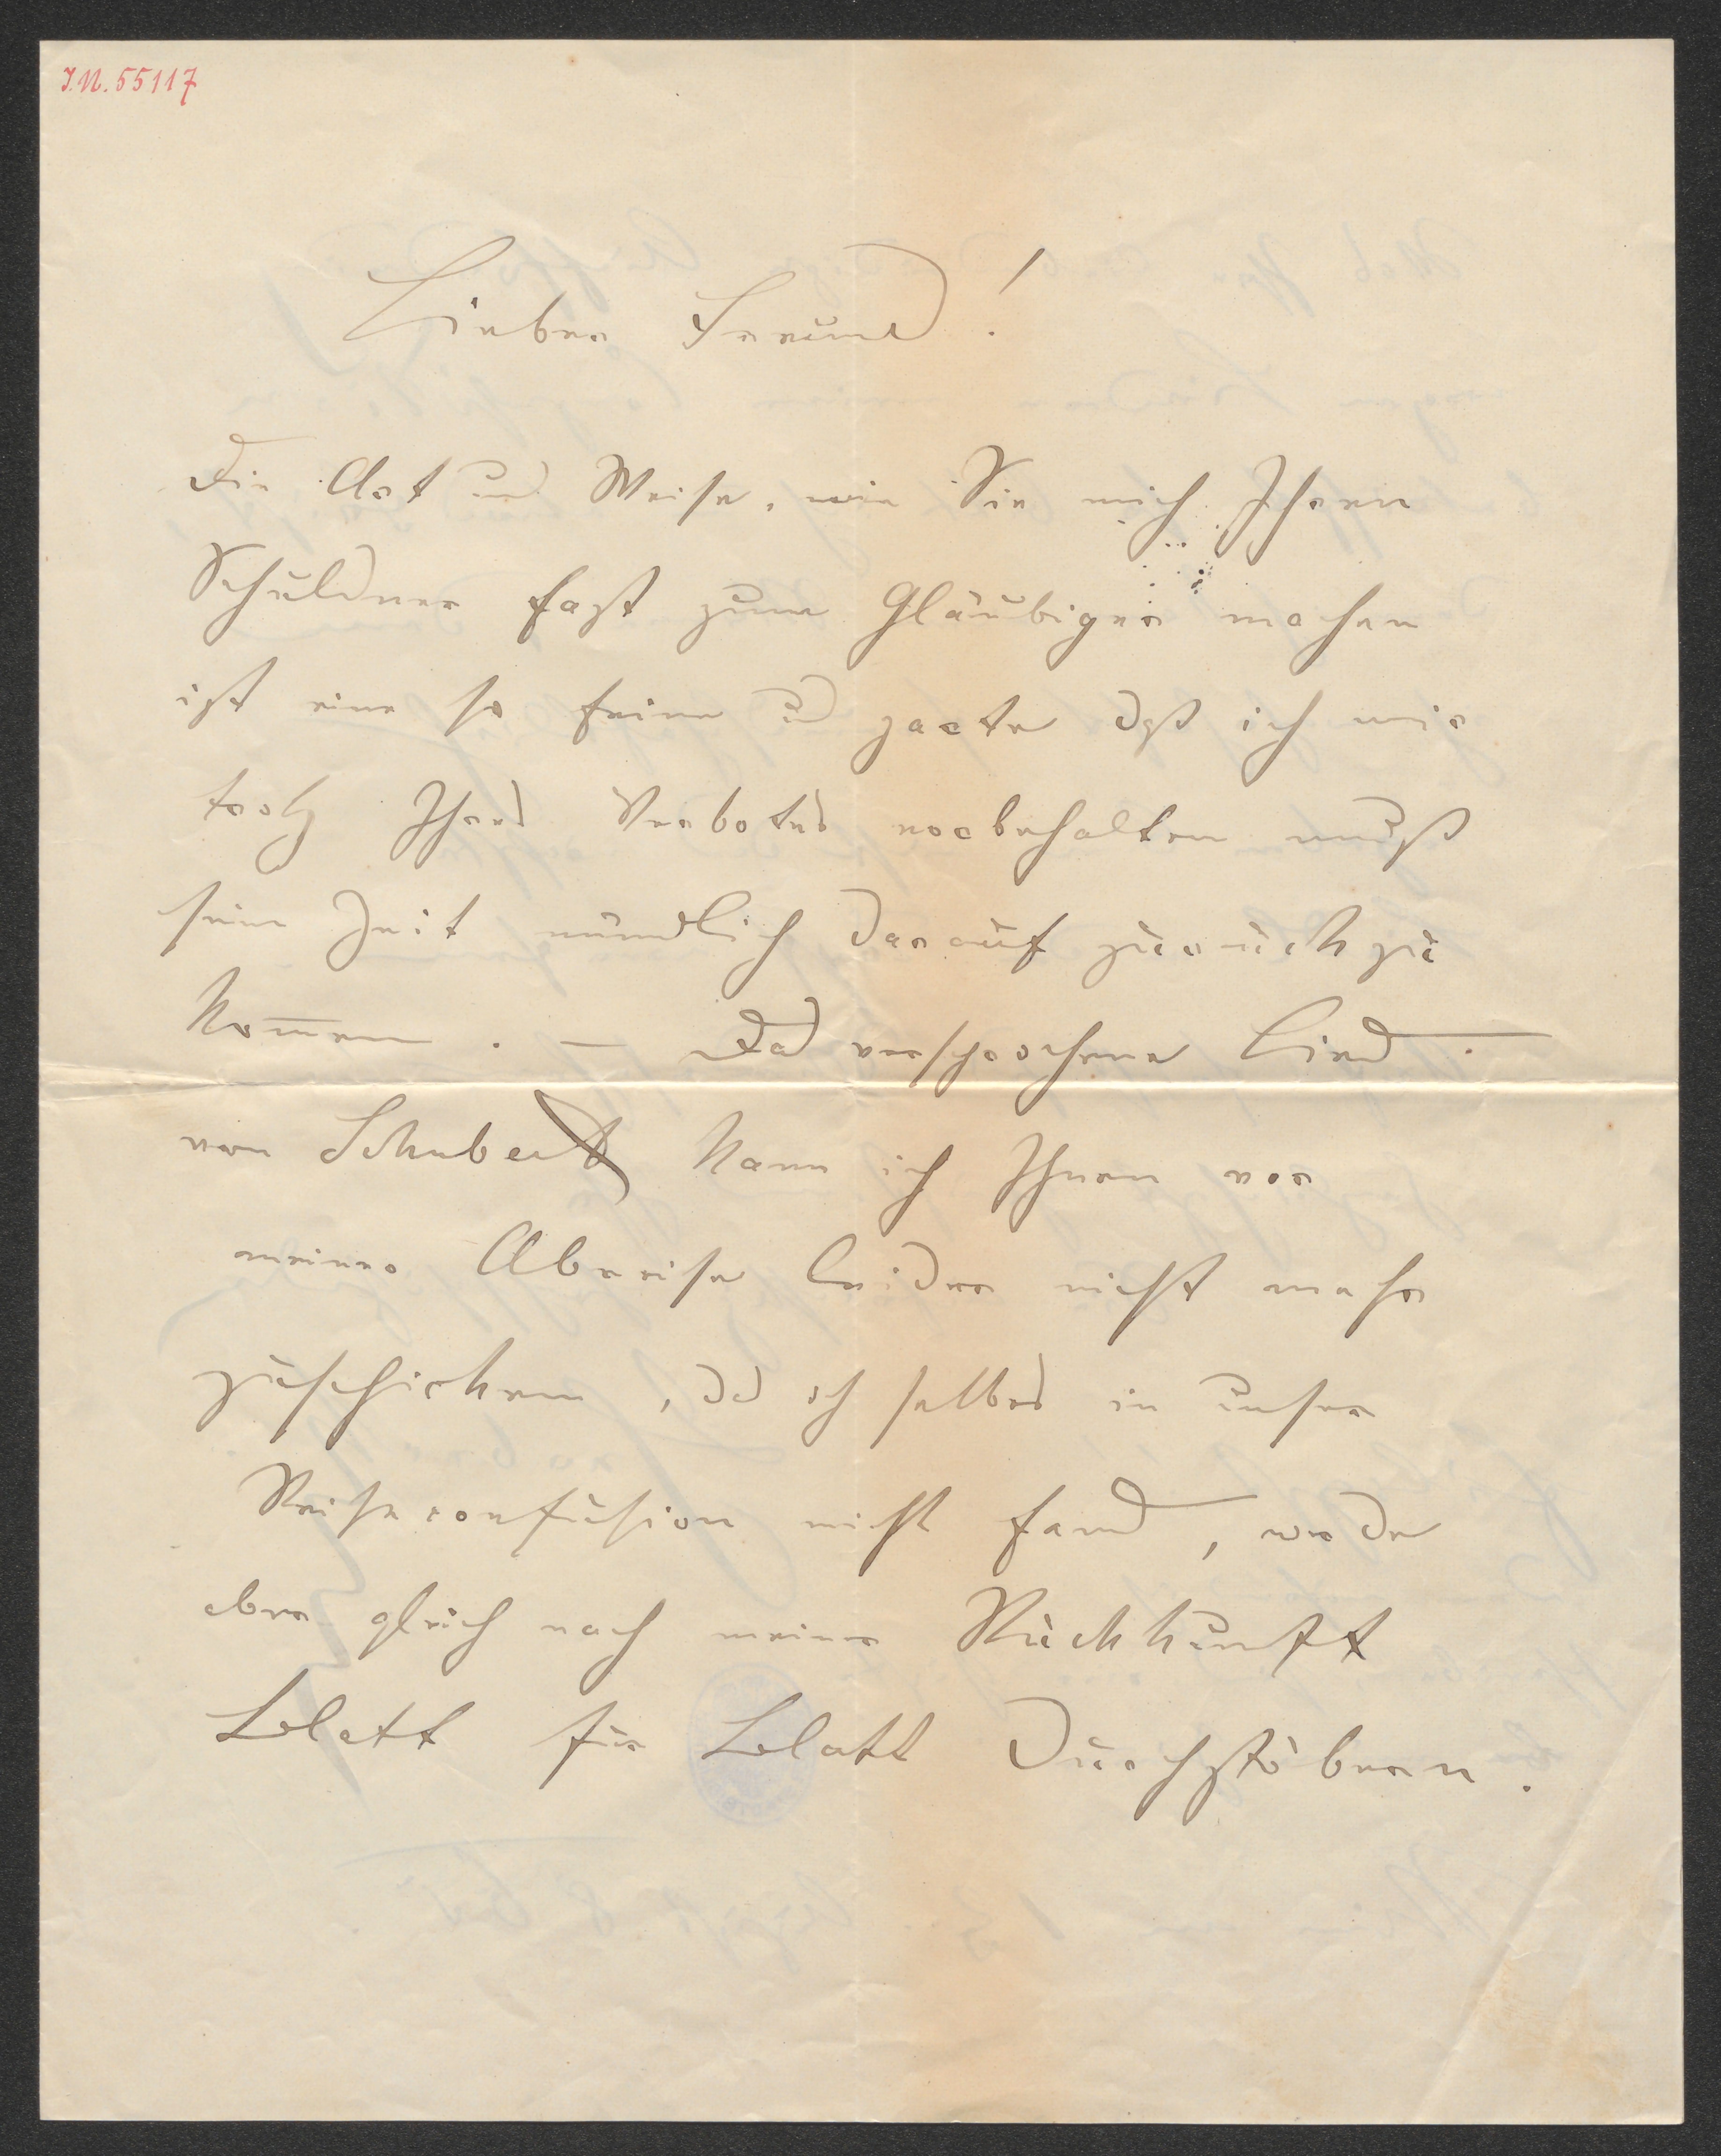 J.N. 55117
Lieber Freund!
Die Art und Weise, wie Sie mich Ihren
Schuldner fast zum Gläubiger machen
ist eine so feine u zarte daß ich mir
trotz Ihres Verbotes vorbehalten muß
seine Zeit mündlich darauf zurück zu
kom̅en. — Das versprochene Lied
von Schubert kann ich Ihnen vor
meiner Abreise leider nicht mehr
zuschicken, da ich selbes in unser
Reiseconfusion nicht fand, werde
aber gleich nach meiner Rückkunft
Blatt für Blatt durchstöbern.